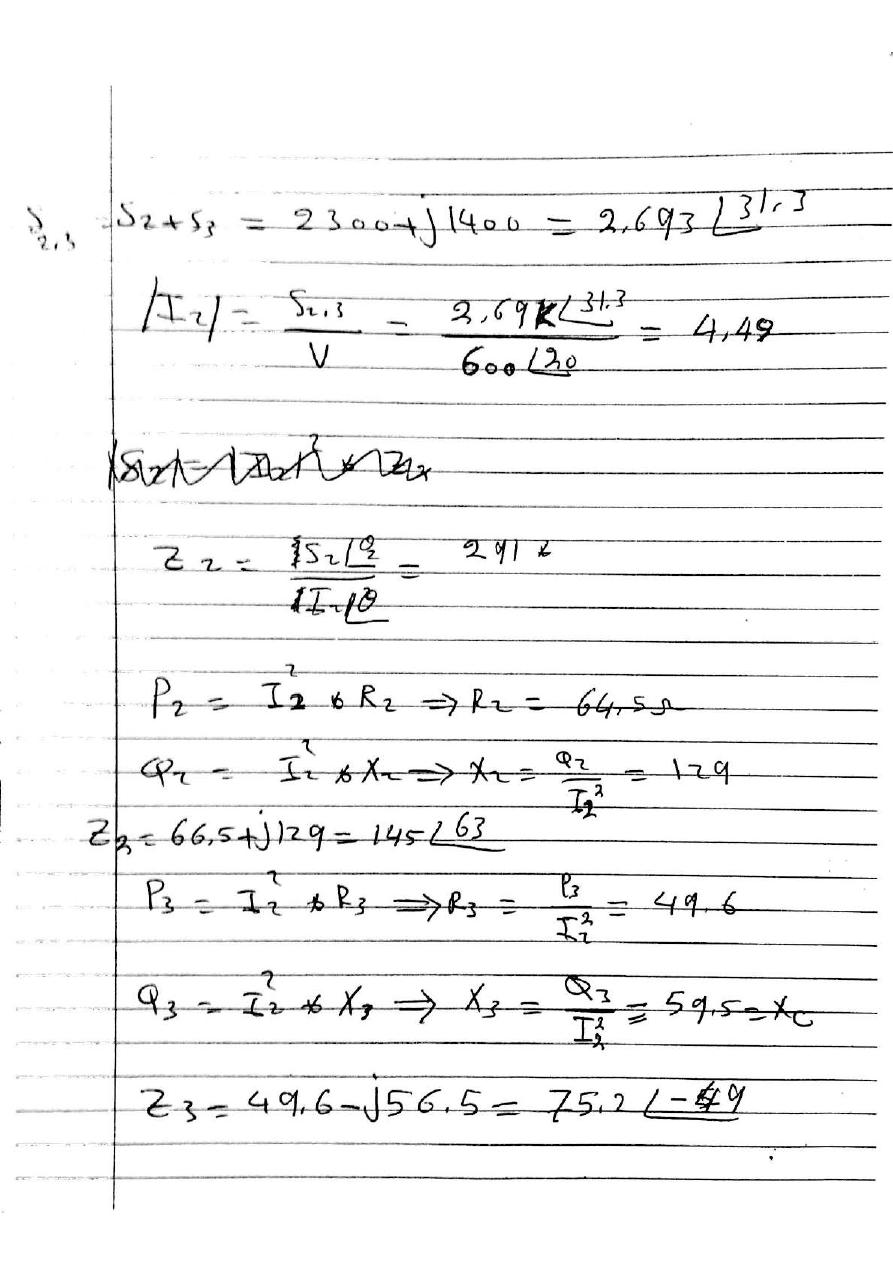 S2,3 = S2 + S3 = 2300 + j1400 = 2,693 ∠31.3
|I2| = S2,3 / V = 2,69k∠31.3 / 600∠20 = 4,49
Z2 = |S2∠θ2 / |I2∠θ = 291 *
P2 = I2² * R2 ⇒ R2 = 64,5Ω
Q2 = I2² * X2 ⇒ X2 = Q2 / I2² = 129
Z2 = 66,5 + j129 = 145∠63
P3 = I2² * R3 ⇒ R3 = P3 / I2² = 49.6
Q3 = I2² * X3 ⇒ X3 = Q3 / I2² = 59,5 = Xc
Z3 = 49.6 - j56.5 = 75.2∠-49